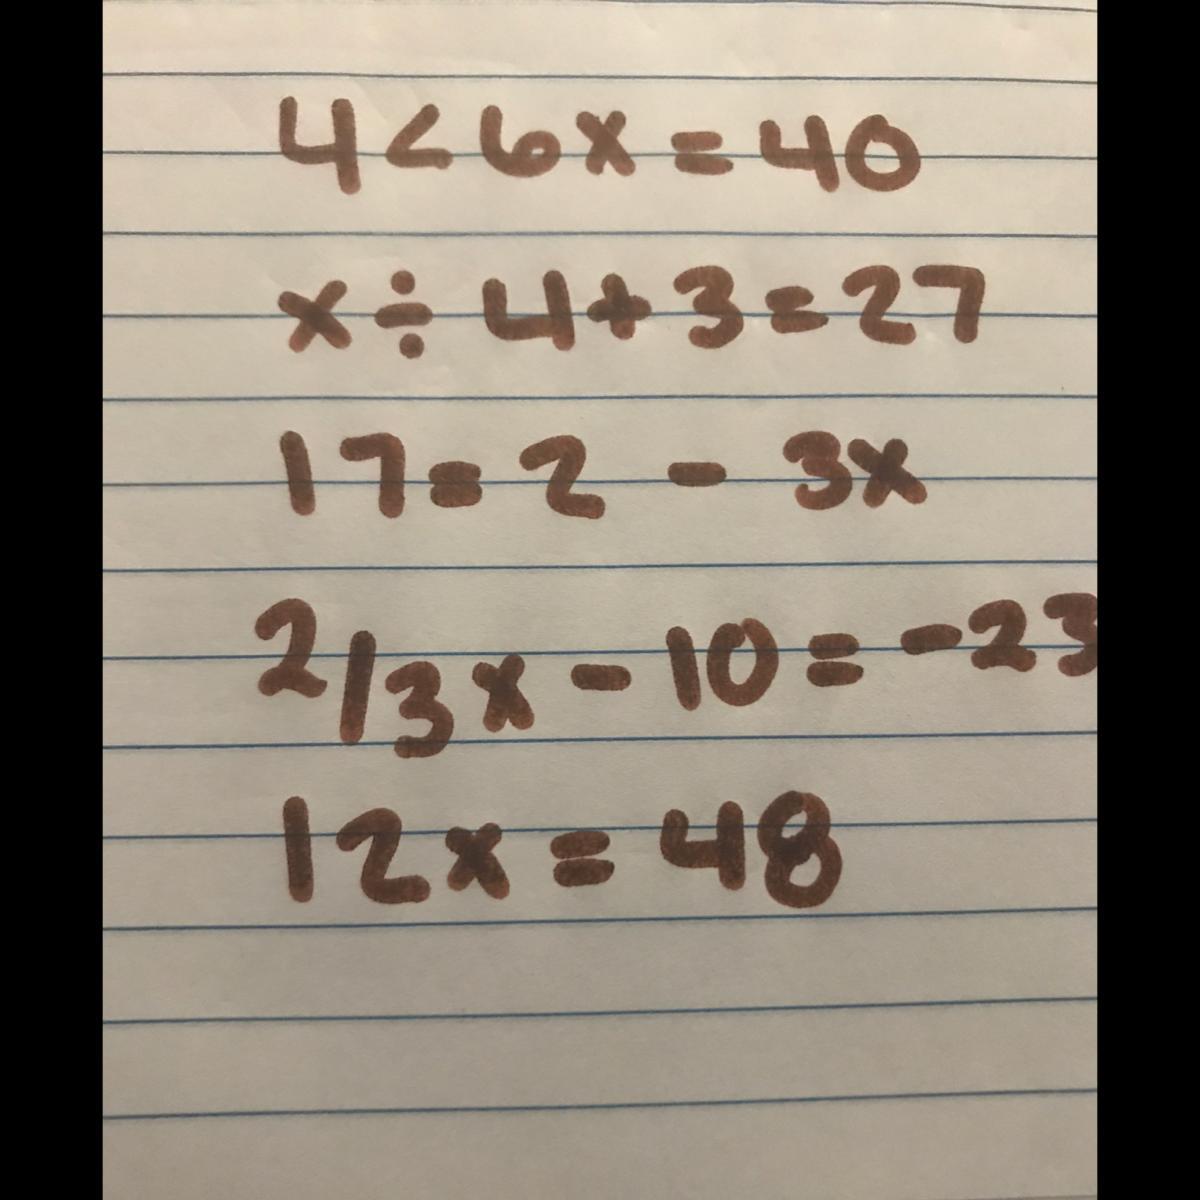 4<6x=40
x÷4+3=27
17=2 - 3x
2/3x-10=-23
12x=48